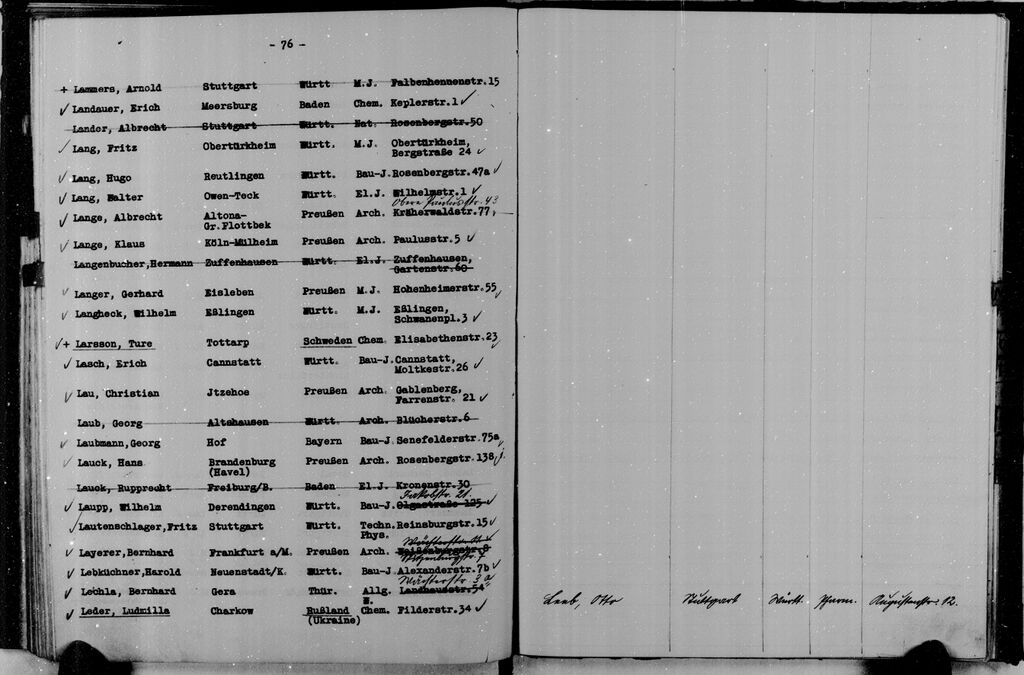 - 76 -
+ Lammers, Arnold Stuttgart Württ M.J. Falbenhennenstr.15
✓ Landauer, Erich Meersburg Baden Chem. Keplerstr.1 ✓
Landor, Albrecht Stuttgart Württ. Nat. Rosenbergstr.50
✓ Lang, Fritz Obertürkheim Württ. M.J. Obertürkheim,
Bergstraße 24 ✓
✓ Lang, Hugo Reutlingen Württ. Bau-J. Rosenbergstr.47a ✓
✓ Lang, Walter Owen-Teck Württ. El.J. Wilhelmstr.1 ✓
Obere Paulusstr. 43
✓ Lange, Albrecht Altona- Preußen Arch. Kräherwaldstr.77
Gr.Flottbek
✓ Lange, Klaus Köln-Mülheim Preußen Arch. Paulusstr.5 ✓
Langenbucher,Hermann Zuffenhausen Württ. El.J. Zuffenhausen,
Gartenstr.60
✓ Langer, Gerhard Eisleben Preußen M.J. Hohenheimerstr.55 ✓
✓ Langheck, Wilhelm Eßlingen Württ. M.J. Eßlingen,
Schwanenpl.3 ✓
✓+ Larsson, Ture Tottarp Schweden Chem. Elisabethenstr.23 ✓
✓ Lasch, Erich Cannstatt Württ. Bau-J. Cannstatt,
Moltkestr.26 ✓
✓ Lau, Christian Jtzehoe Preußen Arch. Gablenberg,
Farrenstr. 21 ✓
Laub, Georg Altshausen Württ. Arch. Blücherstr.6
✓ Laubmann,Georg Hof Bayern Bau-J. Senefelderstr.75a ✓
✓ Lauck, Hans Brandenburg Preußen Arch. Rosenbergstr.138
(Havel)
Lauck, Rupprecht Freiburg/B. Baden El.J. Kronenstr.30
Jakobstr. 21.
✓ Laupp, Wilhelm Derendingen Württ. Bau-J. Olgastraße 125 ✓
✓ Lautenschlager,Fritz Stuttgart Württ. Techn. Reinsburgstr.15 ✓
Phys.
✓ Layerer,Bernhard Frankfurt a/M. Preußen Arch. Weißenburgstr.8
✓ Lebküchner,Harold Neuenstadt/K. Württ. Bau-J. Alexanderstr.7b ✓
Wächterstr. 3a
✓ Lechla, Bernhard Gera Thür. Allg. Landhausstr.54
W.
✓ Leder, Ludmilla Charkow Rußland Chem. Filderstr.34 ✓
(Ukraine)
Leeb, Otto Stuttgart Württ. Pharm. Augustenstr. 12.